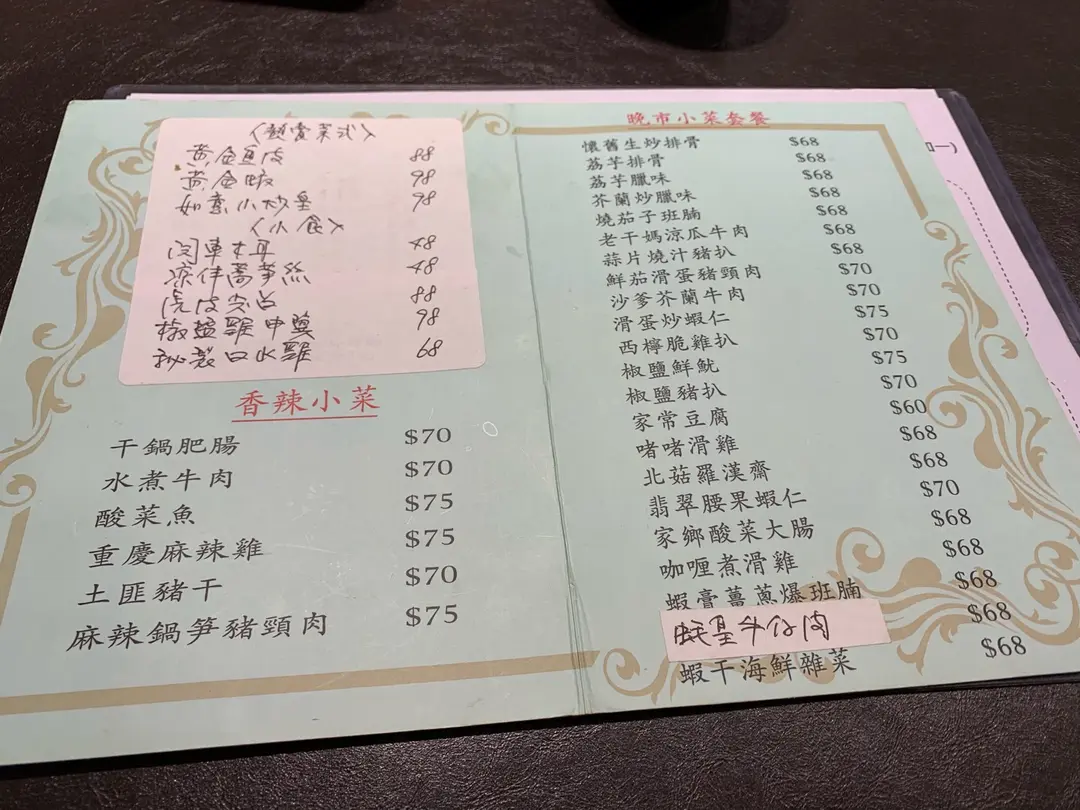 菜式〉
黃金魚皮 88
黃金蝦 98
如意小炒皇 98
〈小食〉
木耳 48
涼伴萵笋絲 48
虎皮尖 88
椒鹽雞中翼 98
秘製口水雞 68
香辣小菜
干鍋肥腸 $70
水煮牛肉 $70
酸菜魚 $75
重慶麻辣雞 $75
土匪豬干 $70
麻辣鍋笋豬頸肉 $75
晚市小菜套餐
懷舊生炒排骨 $68
荔芋排骨 $68
荔芋臘味 $68
芥蘭炒臘味 $68
燒茄子班腩 $68
老干媽涼瓜牛肉 $68
蒜片燒汁豬扒 $68
鮮茄滑蛋豬頸肉 $70
沙爹芥蘭牛肉 $70
滑蛋炒蝦仁 $75
西檸脆雞扒 $70
椒鹽鮮魷 $75
椒鹽豬扒 $70
家常豆腐 $60
啫啫滑雞 $68
北菇羅漢齋 $68
翡翠腰果蝦仁 $70
家鄉酸菜大腸 $68
咖喱煮滑雞 $68
蝦膏薑蔥爆班腩 $68
蚝皇牛仔肉 $68
蝦干海鮮雜菜 $68